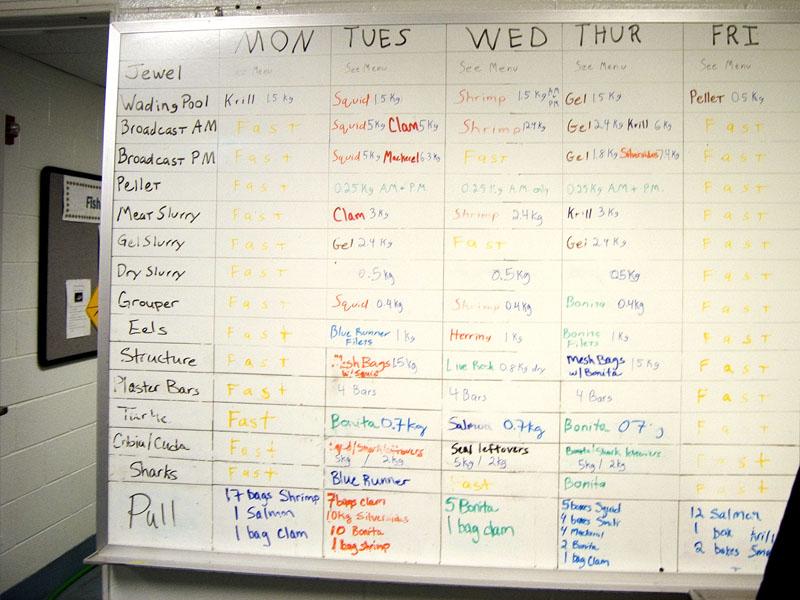 MON TUES WED THUR FRI
Jewel See Menu See Menu See Menu See Menu See Menu
Wading Pool Krill 1.5 Kg Squid 1.5 Kg Shrimp 1.5 Kg AM PM Gel 1.5 Kg Pellet 0.5 Kg
Broadcast AM Fast Squid 5 Kg Clam 5 Kg Shrimp Gel 2.4 Kg Krill 6 Kg Fast
Broadcast PM Fast Squid 5 Kg Mackerel 6.3 Kg Fast Gel 1.8 Kg Silversides 7.4 Kg Fast
Pellet Fast 0.25 Kg AM + P.M. 0.25 Kg A.M. only 0.25 Kg AM + PM. Fast
Meat Slurry Fast Clam 3 Kg Shrimp 2.4 kg Krill 3 Kg Fast
Gel Slurry Fast Gel 2.4 Kg Fast Gel 2.4 Kg Fast
Dry Slurry Fast 0.5 Kg 0.5 Kg 0.5 Kg Fast
Grouper Fast Squid 0.4 Kg Shrimp 0.4 Kg Bonita 0.4 Kg Fast
Eels Fast Blue Runner Filets 1 Kg Herring 1 Kg Bonita Filets 1 Kg Fast
Structure Fast Mesh Bags w/ Squid 1.5 Kg Live Rock 0.8 Kg dry Mesh Bags w/ Bonita 1.5 Kg Fast
Plaster Bars Fast 4 Bars 4 Bars 4 Bars Fast
Turtle Fast Bonita 0.7 kg Salmon 0.7 kg Bonita 0.7 Fast
Cobia/Cuda Fast Squid/Shark leftovers Seal leftovers Bonita/Shark leftovers Fast
5 kg / 2 kg 5 kg / 2 kg 5 kg / 2 kg
Sharks Fast Blue Runner Fast Bonita Fast
Pull
17 bags Shrimp
1 Salmon
1 bag Clam
7 bags clam
10 kg Silversides
10 Bonita
1 bag shrimp
5 Bonita
1 bag clam
5 boxes Squid
4 boxes Smelt
4 Mackerel
2 Bonita
1 bag Clam
12 Salmon
1 box Krill
2 boxes
Fish